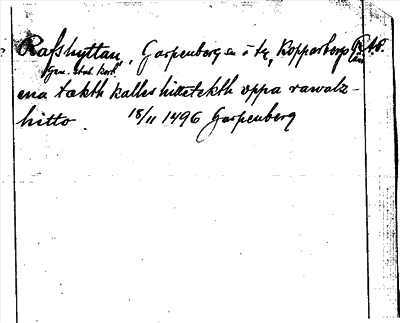 Rafshyttan, Garpenberg sn o tg, Kopparbergs
"Gen. stab. kort."
ena tækth kallis hittetækth oppa rawalz-
hitto 18/11 1496 Garpenberg